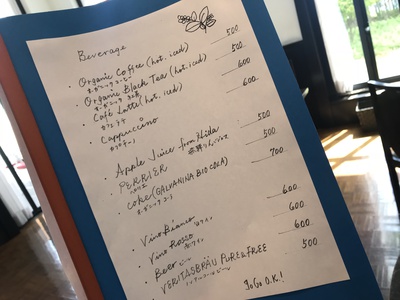 Beverage
・Organic Coffee (hot. iced) 500
オーガニックコーヒー
・Organic Black Tea (hot. iced) 500
オーガニック 紅茶
・Café Latte (hot. iced) 600
カフェラテ
・Cappuccino 600
カプチーノ
・Apple Juice from Hida 500
飛騨りんごジュース
・PERRIER 500
ペリエ
・Coke (GALVANINA BIO COLA) 700
オーガニックコーラ
・Vino Bianco 白ワイン 600
・Vino Rosso 赤ワイン 600
・Beer ビール 600
・VERITASBRÄU PURE & FREE 500
ノンアルコールビール
To Go O.K!